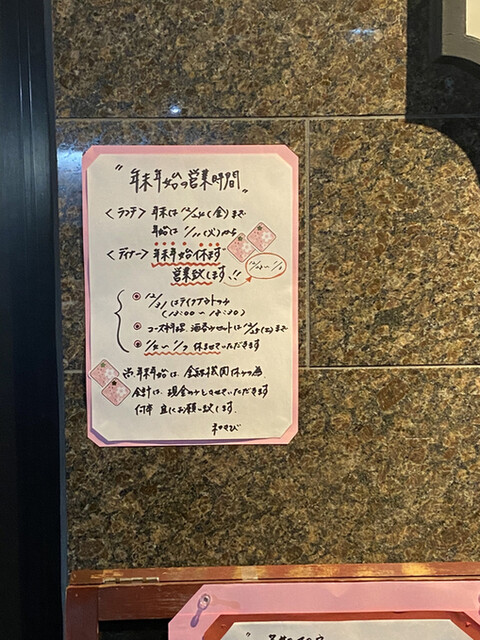 "年末年始の営業時間"
〈ランチ〉 年末は12/24(金)まで
年始は1/11(火)から
〈ディナー〉 年末年始休まず
営業致します!!
12/31はテイクアウトのみ
コース料理、
1/2〜1/7 休ませていただきます
尚、年末年始は、金融機関休みの為
会計は、現金のみとさせていただきます
何卒 宜しくお願い致します。